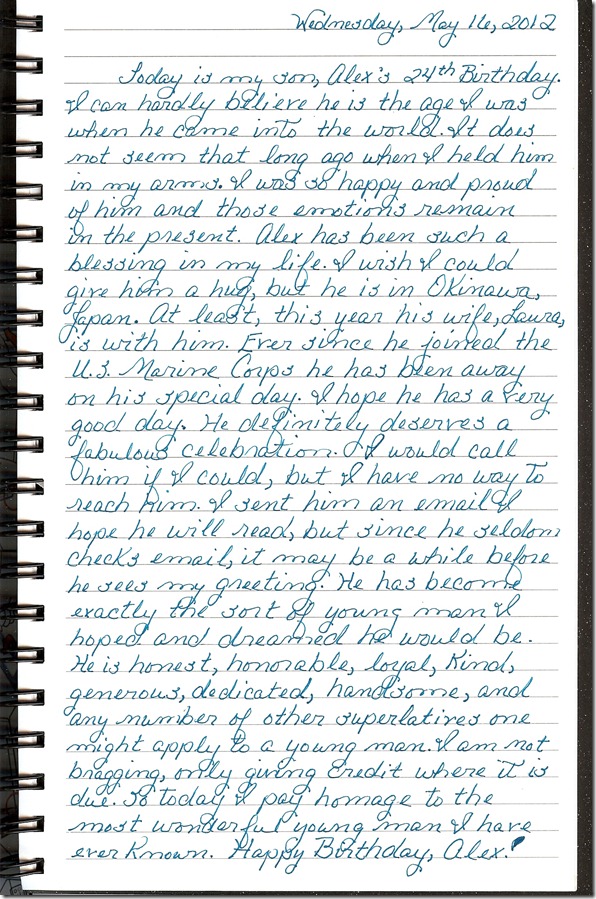 Wednesday, May 16, 2012
Today is my son, Alex's 24th Birthday.
I can hardly believe he is the age I was
when he came into the world. It does
not seem that long ago when I held him
in my arms. I was so happy and proud
of him and those emotions remain
in the present. Alex has been such a
blessing in my life. I wish I could
give him a hug, but he is in Okinawa,
Japan. At least, this year his wife, Laura,
is with him. Ever since he joined the
U.S. Marine Corps he has been away
on his special day. I hope he has a very
good day. He definitely deserves a
fabulous celebration. I would call
him if I could, but I have no way to
reach him. I sent him an email I
hope he will read, but since he seldom
checks email, it may be a while before
he sees my greeting. He has become
exactly the sort of young man I
hoped and dreamed he would be.
He is honest, honorable, loyal, kind,
generous, dedicated, handsome, and
any number of other superlatives one
might apply to a young man. I am not
bragging, only giving credit where it is
due. So today I pay homage to the
most wonderful young man I have
ever known. Happy Birthday, Alex!